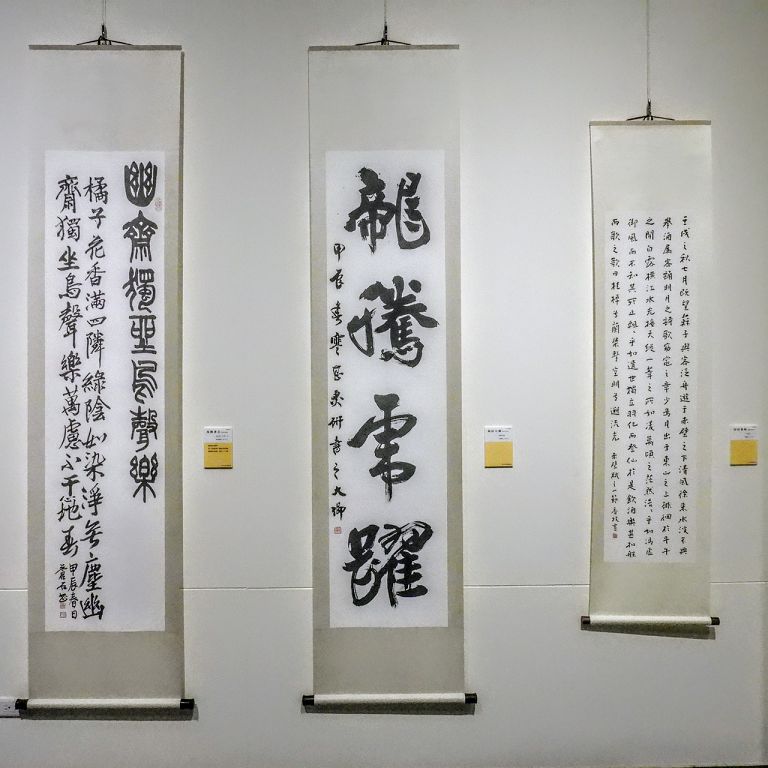 幽齋獨坐鳥聲樂
橘子花香滿四隣綠陰如染淨無塵幽
齋獨坐鳥聲樂萬慮不干
甲辰春日
龍騰虎躍
甲辰春寒
壬戌之秋七月既望蘇子與客泛舟遊于赤壁之下清風徐來水波不興
舉酒屬客誦明月之詩歌窈窕之章少焉月出于東山之上徘徊於斗牛
之間白露橫江水光接天縱一葦之所如凌萬頃之茫然浩浩乎如馮虛
御風而不知其所止飄飄乎如遺世獨立羽化而登仙於是飲酒樂甚扣舷
而歌之歌曰桂棹兮蘭槳擊空明兮溯流光 赤壁賦之節